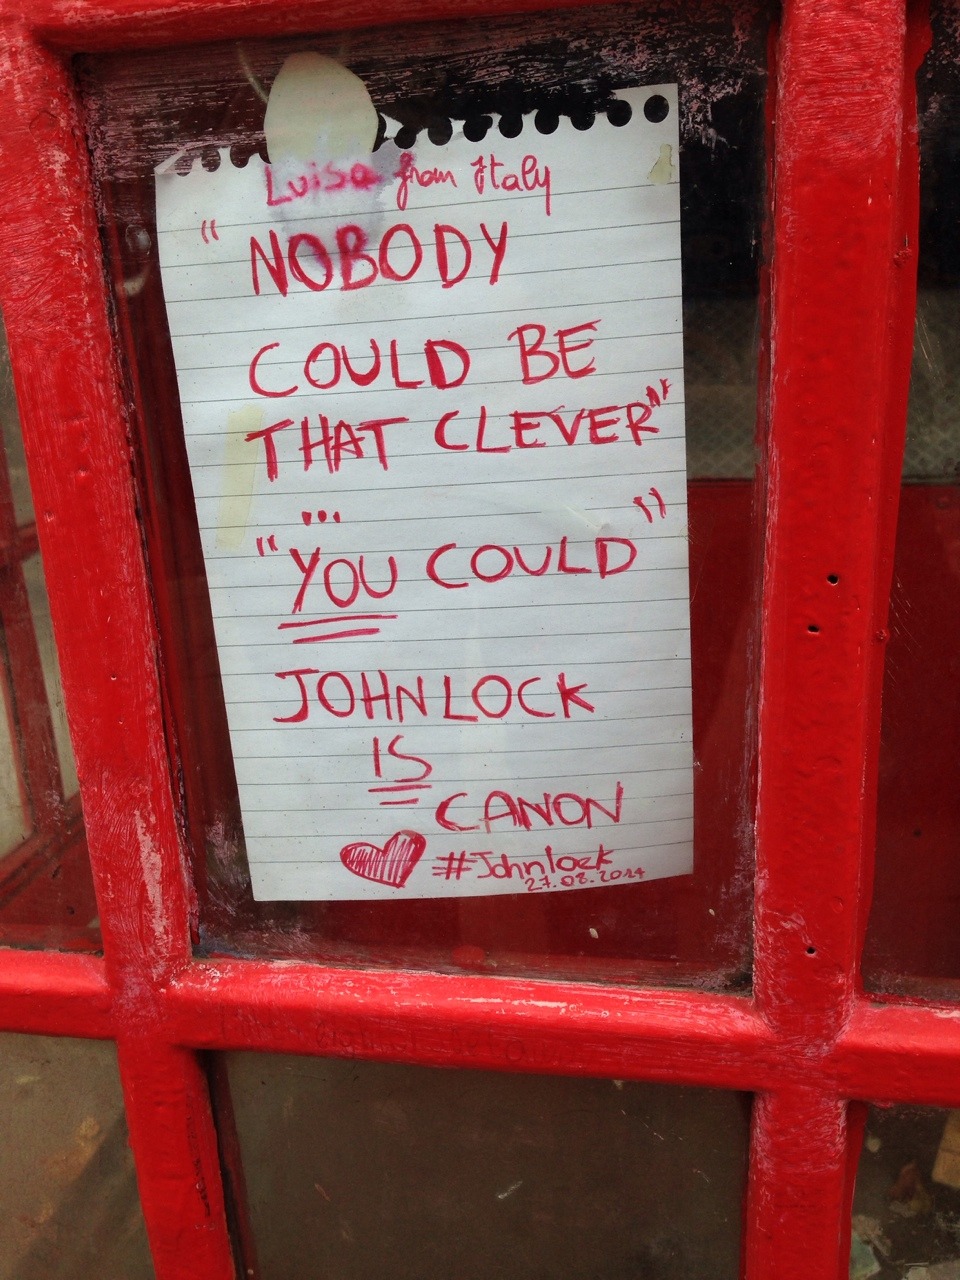 Luisa from Italy
"NOBODY
COULD BE
THAT CLEVER"
...
"YOU COULD"
JOHNLOCK
IS
CANON
#Johnlock
27.08.2014